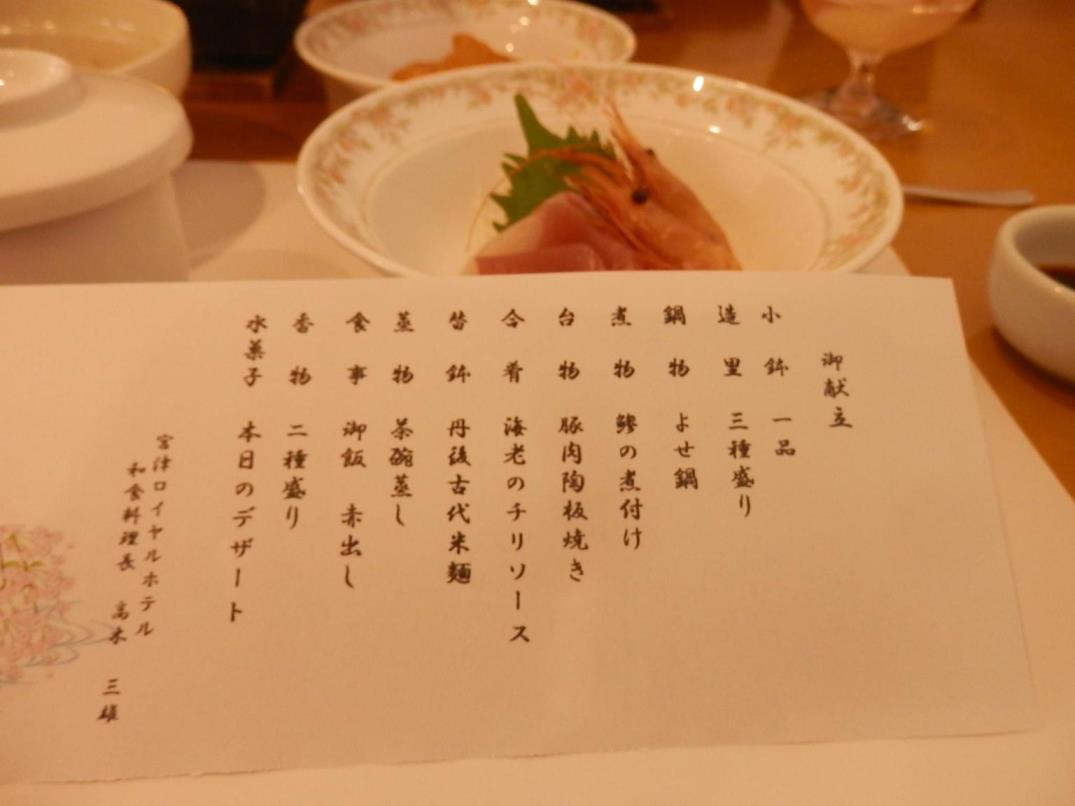 御献立
小鉢 一品
造里 三種盛り
鍋物 よせ鍋
煮物 鰺の煮付け
台物 豚肉陶板焼き
合肴 海老のチリソース
替鉢 丹後古代米麺
蒸物 茶碗蒸し
食事 御飯 赤出し
香物 二種盛り
水菓子 本日のデザート
宮津ロイヤルホテル
和食料理長 高木 三雄